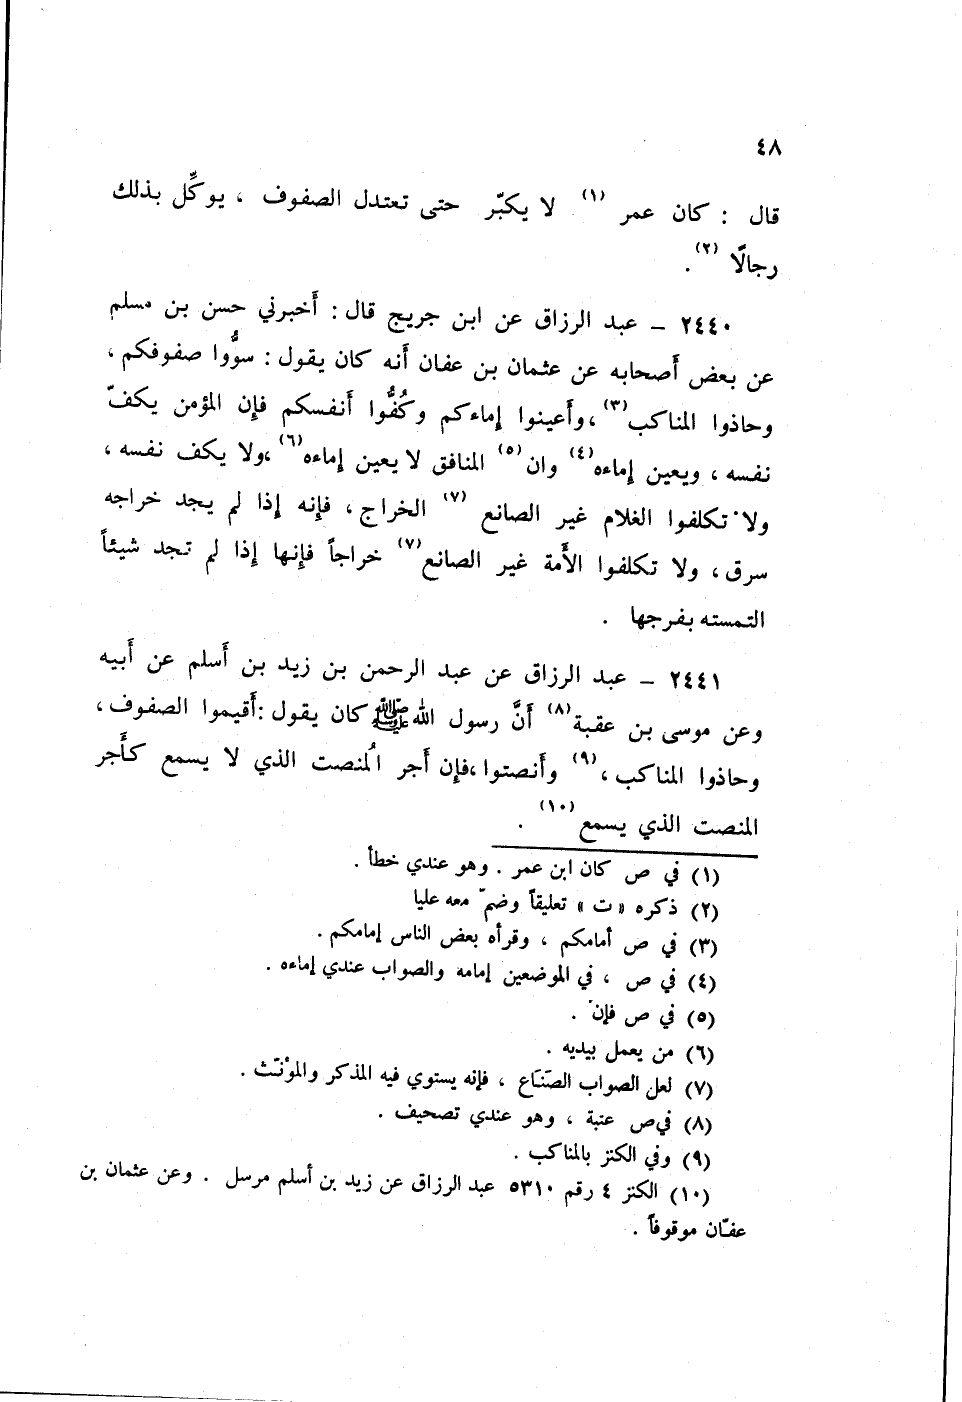 ٤٨
قال : كان عمر (١) لا يكبّر حتى تعتدل الصفوف ، يوكِّل بذلك
رجالًا (٢) .
٢٤٤٠ – عبد الرزاق عن ابن جريج قال : أَخبرني حسن بن مسلم
عن بعض أَصحابه عن عثمان بن عفان أَنه كان يقول : سوُّوا صفوفكم ،
وحاذوا المناكب (٣) ، وأَعينوا إِماءكم وكُفُّوا أَنفسكم فإِن المؤمن يكفّ
نفسه ، ويعين إِماءه (٤) وان (٥) المنافق لا يعين إِماءه (٦) ،ولا يكف نفسه ،
ولا تكلفوا الغلام غير الصانع (٧) الخراج ، فإِنه إِذا لم يجد خراجه
سرق ، ولا تكلفوا الأَمة غير الصانع (٧) خراجاً فإِنها إِذا لم تجد شيئاً
التمسته بفرجها .
٢٤٤١ – عبد الرزاق عن عبد الرحمن بن زيد بن أَسلم عن أَبيه
وعن موسى بن عقبة (٨) أَنَّ رسول الله ﷺ كان يقول : أَقيموا الصفوف ،
وحاذوا المناكب ، (٩) وأَنصتوا ، فإِن أَجر المُنصت الذي لا يسمع كأَجر
المنصت الذي يسمع (١٠) .
(١) في ص كان ابن عمر . وهو عندي خطأ .
(٢) ذكره «ت» تعليقاً وضمّ معه عليا
(٣) في ص أمامكم ، وقرأه بعض الناس إمامكم .
(٤) في ص ، في الموضعين إمامه والصواب عندي إماءه .
(٥) في ص فإن .
(٦) من يعمل بيديه .
(٧) لعل الصواب الصَنَاع ، فإنه يستوي فيه المذكر والمؤنّث .
(٨) في ص عتبة ، وهو عندي تصحيف .
(٩) وفي الكنز بالمناكب .
(١٠) الكنز ٤ رقم ٥٣١٠ عبد الرزاق عن زيد بن أسلم مرسل . وعن عثمان بن
عفّان موقوفاً .